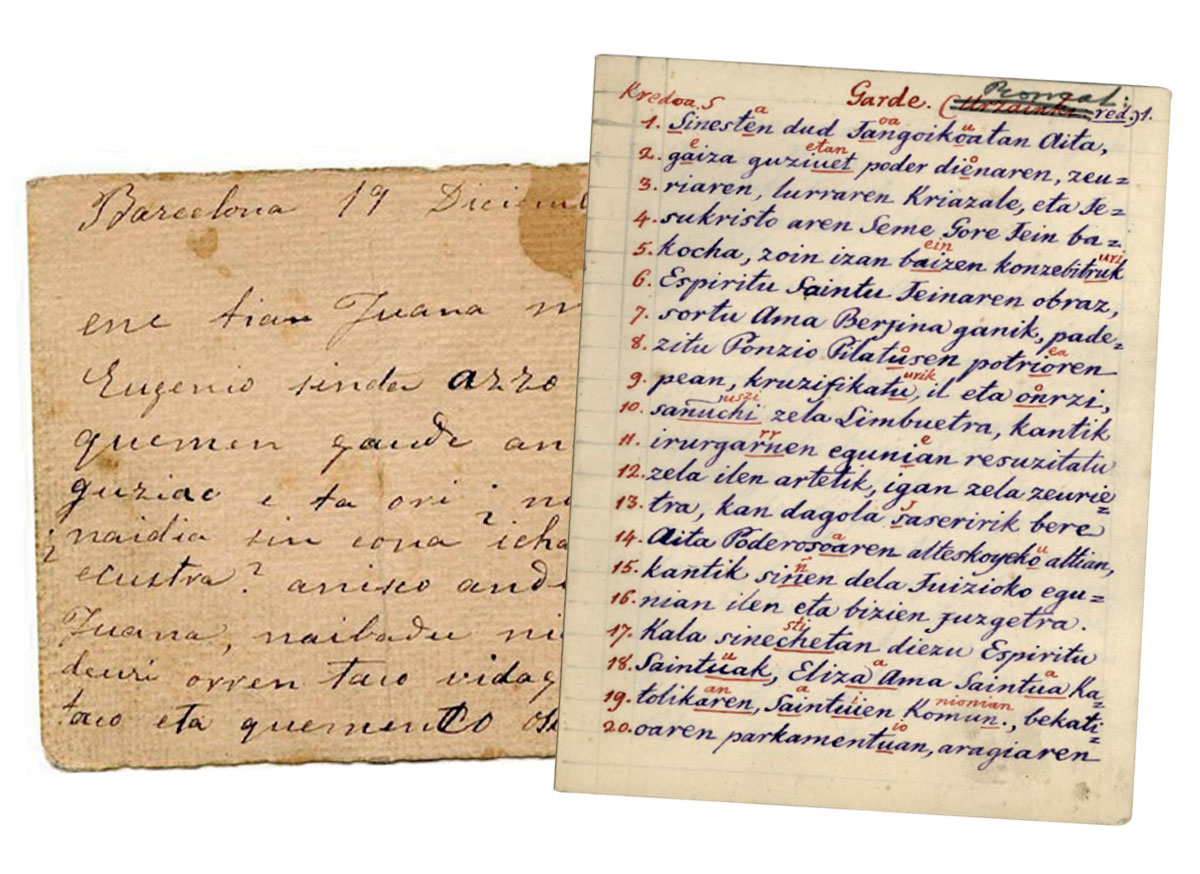 Barcelona 19 Diciemb
ene tian Juana
Eugenio sinda azzo
quemen gaude an
guziac e ta ori
naidia sin cona icha
ecustra? anisco and
Juana, naibadu ni
deuri orren taco vidag
taco eta quemenco
Kredoa. 5 Garde. (Urzainki red.) 1.
Ronzal:
a oa u
1. Sinesten dud Jangoikoatan Aita,
e etan e
2. gaiza guziuet poder dienaren, zeu=
3. riaren, lurraren Kriazale, eta Je=
4. sukristo aren Seme Gore Jein ba=
ein uri
5. kocha, zoin izan baizen konzebitruk
6. Espiritu Saintu Jeinaren obraz,
7. sortu Ama Berjina ganik, pade=
o ea
8. zitu Ponzio Pilatusen potrioren
urik o
9. pean, kruzifikatu, il eta onrzi,
juszi
10. sañuchi zela Limbuetra, kantik
rr e
11. irurgarnen egunian resuzitatu
12. zela ilen artetik, igan zela zeurie=
j
13. tra, kan dagola saseririk bere
a u
14. Aita Poderosoaren alteskoyeko altian,
ñ
15. kantik sinen dela Juizioko egu=
16. nian ilen eta bizien juzgetra.
sti
17. Kala sinechetan diezu Espiritu
u a a
18. Saintuak, Eliza Ama Saintua Ka=
an a i nionian
19. tolikaren, Saintuien Komun., bekati=
io
20. oaren parkamentuan, aragiaren